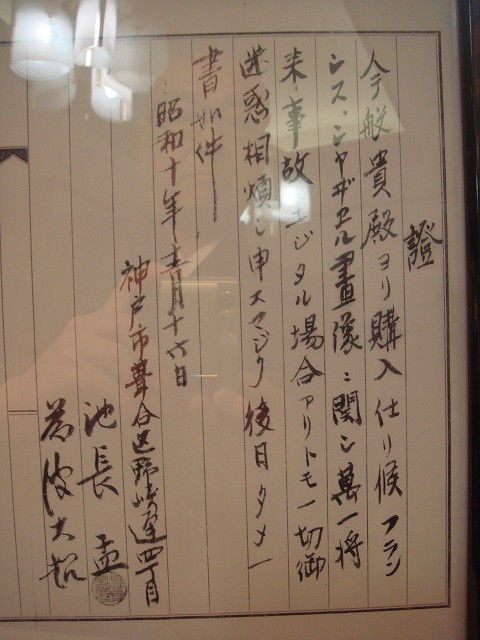 證
今般貴殿ヨリ購入仕リ候フラン
シス、シャヴエル畫像ニ関シ萬一将
来事故生ジタル場合アリトモ一切御
迷惑相煩シ申スマジク後日タメ一
書如件
昭和十年十二月十六日
神戸市葺合区野崎通四丁目
池長孟
藤波大超